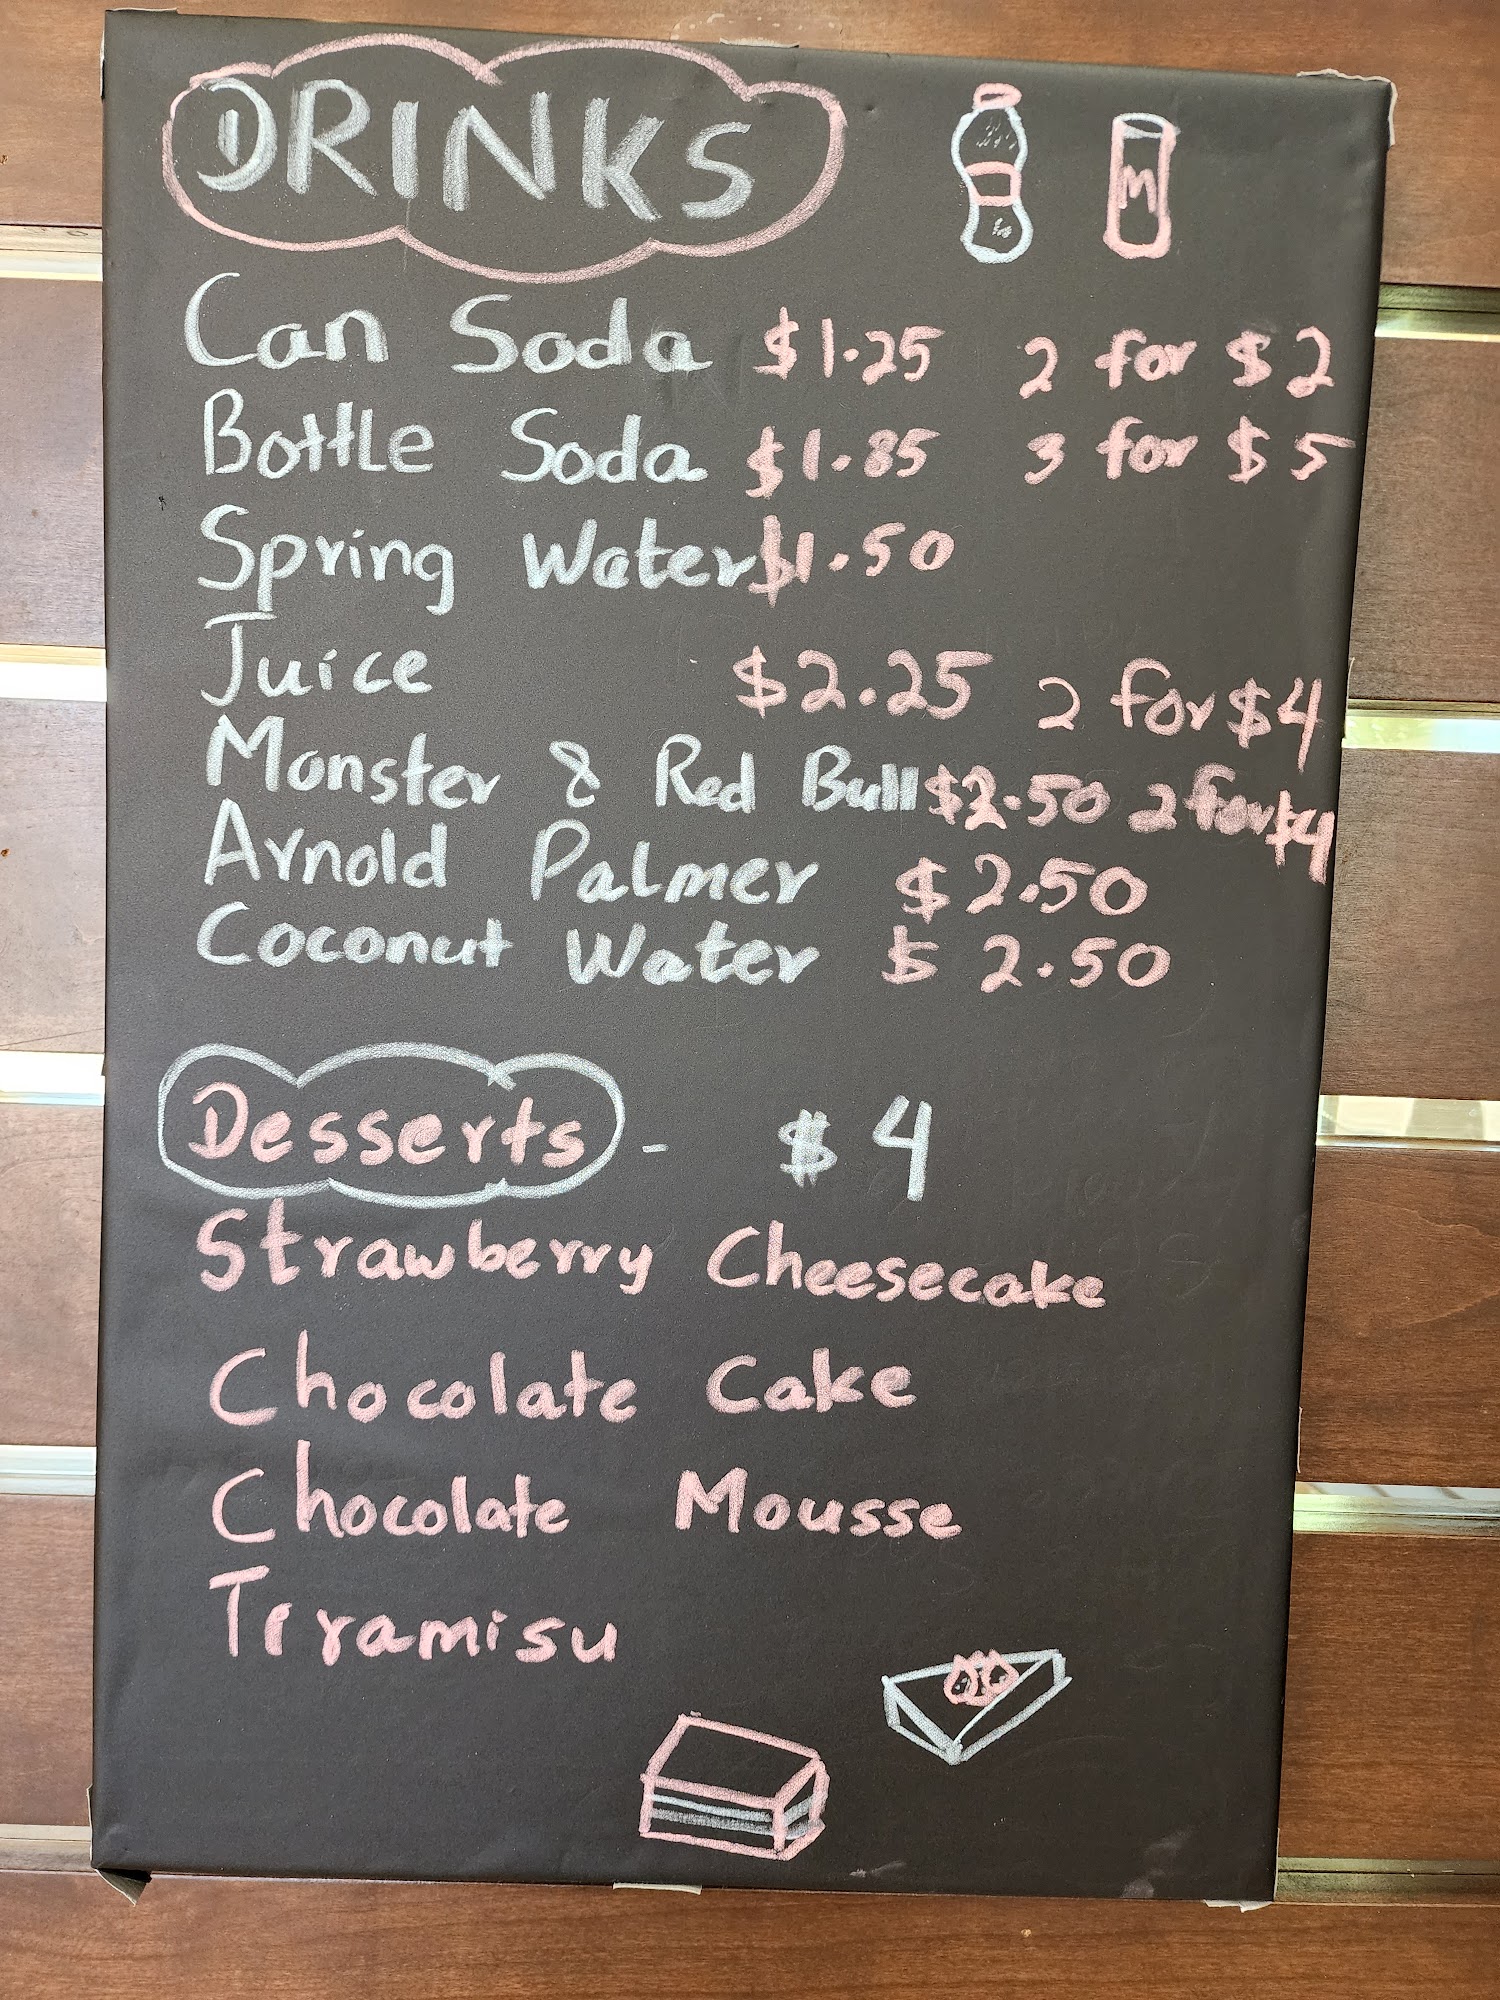 DRINKS
M
Can Soda $1.25 2 for $2
Bottle Soda $1.85 3 for $5
Spring Water $1.50
Juice $2.25 2 for $4
Monster & Red Bull $2.50 2 for $4
Arnold Palmer $2.50
Coconut Water $2.50
Desserts - $4
Strawberry Cheesecake
Chocolate Cake
Chocolate Mousse
Tiramisu